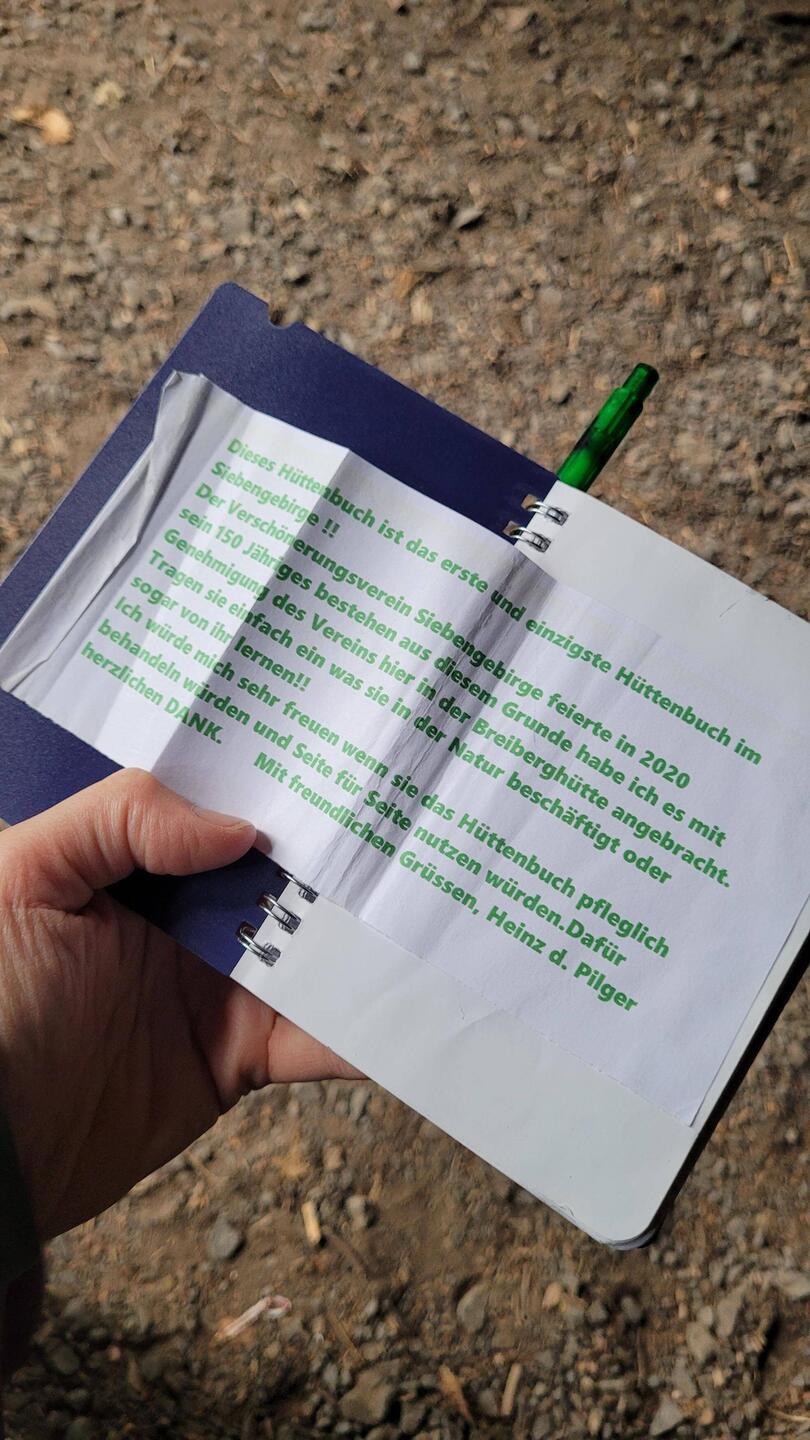 Dieses Hüttenbuch ist das erste und einzigste Hüttenbuch im
Siebengebirge !!
Der Verschönerungsverein Siebengebirge feierte in 2020
sein 150 Jähriges bestehen aus diesem Grunde habe ich es mit
Genehmigung des Vereins hier in der Breiberghütte angebracht.
Tragen sie einfach ein was sie in der Natur beschäftigt oder
sogar von ihr lernen!!
Ich würde mich sehr freuen wenn sie das Hüttenbuch pfleglich
behandeln würden und Seite für Seite nutzen würden.Dafür
herzlichen DANK.
Mit freundlichen Grüssen, Heinz d. Pilger